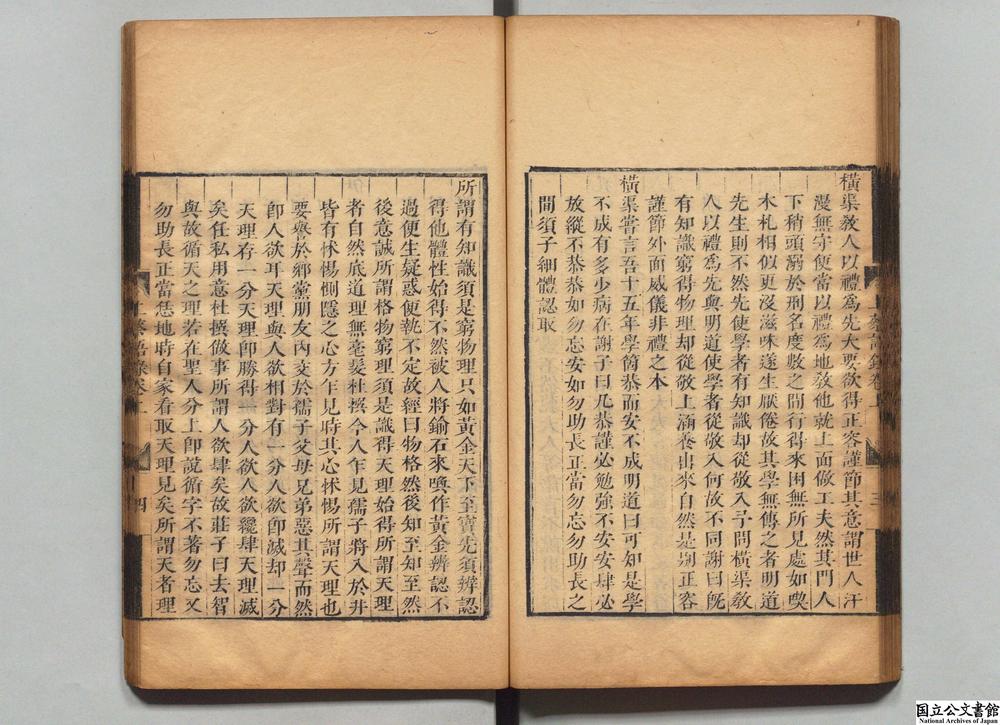 橫渠敎人以禮爲先大要欲得正容謹節其意謂世人汗
漫無守便當以禮爲地敎他就上面做工夫然其門人
下稍頭溺於刑名度數之間行得來困無所見處如喫
木札相似更沒滋味遂生厭倦故其學無傳之者明道
先生則不然先使學者有知識却從敬入予問橫渠敎
人以禮爲先與明道使學者從敬入何故不同謝曰旣
有知識窮得物理却從敬上涵養出來自然是別正容
謹節外面威儀非禮之本
橫渠嘗言吾十五年學箇恭而安不成明道曰可知是學
不成有多少病在謝子曰凡恭謹必勉強不安安肆必
放縱不恭恭如勿忘安如勿助長正當勿忘勿助長之
間須子細體認取
所謂有知識須是窮物理只如黃金天下至寶先須辨認
得他體性始得不然被人將鍮石來喚作黃金辨認不
過便生疑惑便執不定故經曰物格然後知至知至然
後意誠所謂格物窮理須是識得天理始得所謂天理
者自然底道理無毫髮杜撰今人乍見孺子將入於井
皆有怵惕惻隱之心方乍見時其心怵惕所謂天理也
要譽於鄕黨朋友內交於孺子父母兄弟惡其聲而然
卽人欲耳天理與人欲相對有一分人欲卽滅却一分
天理存一分天理卽勝得一分人欲人欲纔肆天理滅
矣任私用意杜撰做事所謂人欲肆矣故莊子曰去智
與故循天之理若在聖人分上卽說循字不著勿忘又
勿助長正當恁地時自家看取天理見矣所謂天者理
上蔡語錄卷上
三
上蔡語錄卷上
四
国立公文書館
National Archives of Japan